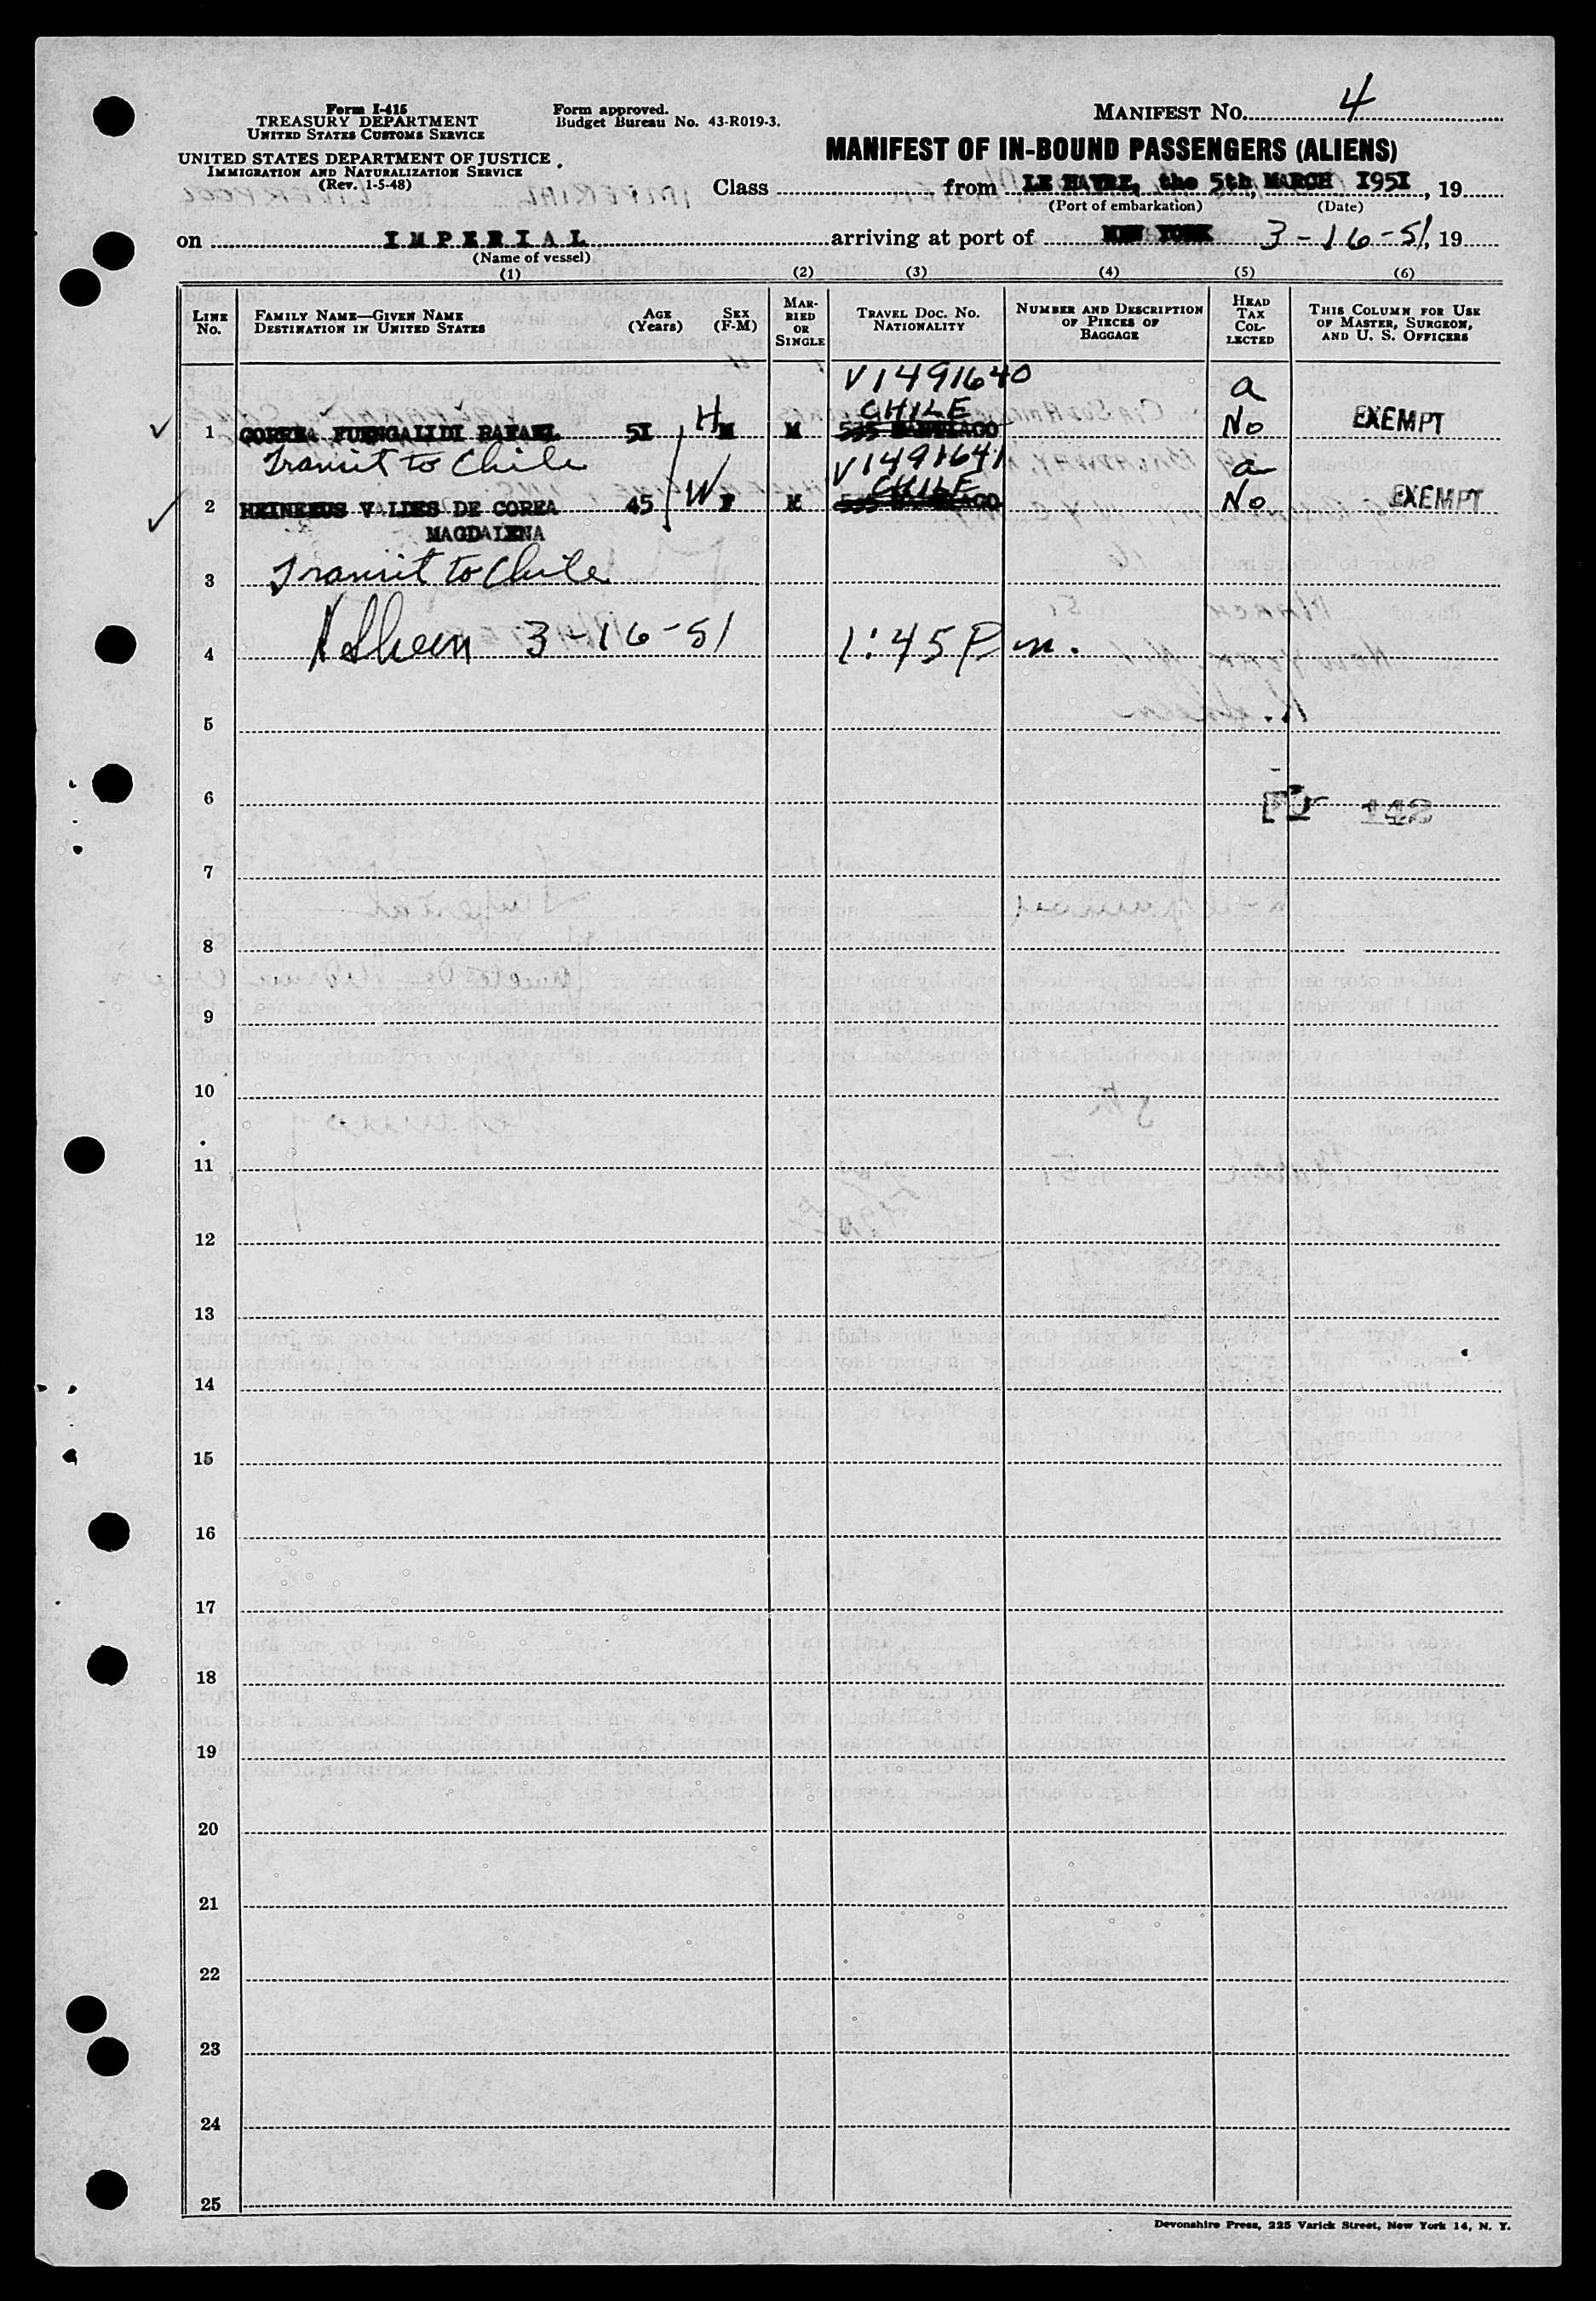 Form I-415
TREASURY DEPARTMENT
UNITED STATES CUSTOMS SERVICE
UNITED STATES DEPARTMENT OF JUSTICE
IMMIGRATION AND NATURALIZATION SERVICE
(Rev. 1-5-48)
Form approved.
Budget Bureau No. 43-R019-3.
MANIFEST NO. 4
MANIFEST OF IN-BOUND PASSENGERS (ALIENS)
Class from LE HAVRE, the 5th, MARCH 1951, 19
(Port of embarkation) (Date)
on IMPERIAL arriving at port of NEW YORK 3-16-51, 19
(Name of vessel)
(1) (2) (3) (4) (5) (6)
LINE NO.
FAMILY NAME—GIVEN NAME
DESTINATION IN UNITED STATES
AGE (Years)
SEX (F-M)
MARRIED OR SINGLE
TRAVEL DOC. NO.
NATIONALITY
NUMBER AND DESCRIPTION OF PIECES OF BAGGAGE
HEAD TAX COLLECTED
THIS COLUMN FOR USE OF MASTER, SURGEON, AND U. S. OFFICERS
V1491640 a
CHILE
1 CORREA RAFAEL 51 H M M 535 SANTIAGO No EXEMPT
Transit to Chile V1491641 a
CHILE
2 VALDES DE COREA 45 W F M No EXEMPT
MAGDALENA
3 Transit to Chile
4 3-16-51 1:45 P m.
5
6
142
7
8
9
10
11
12
13
14
15
16
17
18
19
20
21
22
23
24
25
Devonshire Press, 225 Varick Street, New York 14, N. Y.